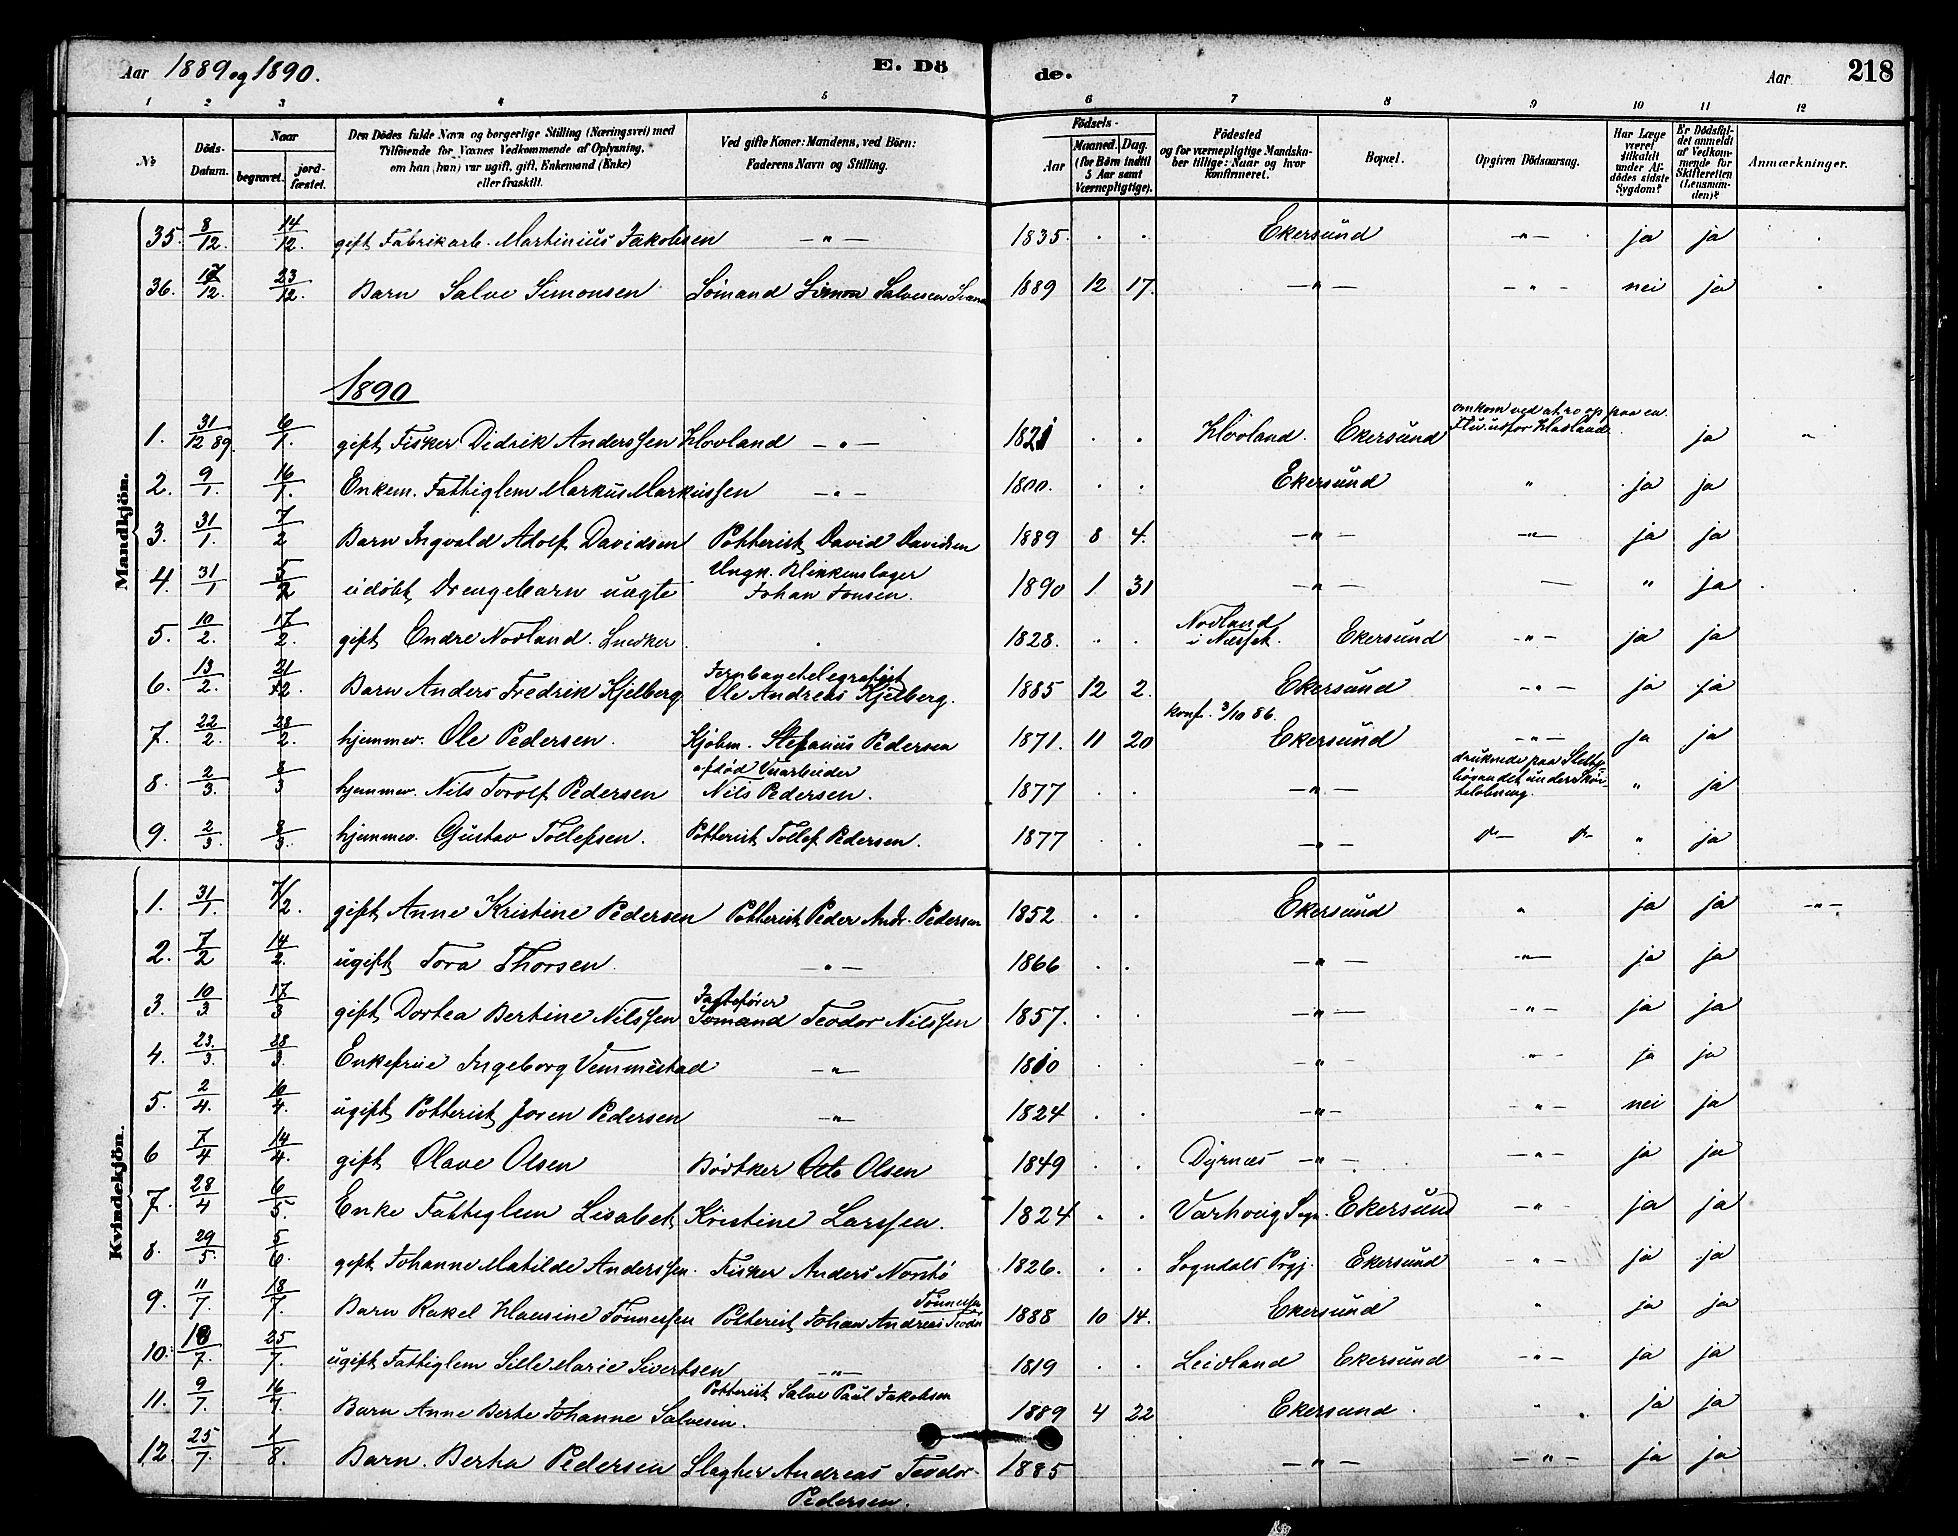 Aar 1889 og 1890. E. Dö de. Aar 218
1 2 3 4 5 6 7 8 9 10 11 12
No Döds-Datum. Naar begravet. jordfæstet. Den Dödes fulde Navn og borgerlige Stilling (Næringsvei) med Tilföiende for Voxnes Vedkommende af Oplysning, om han (hun) var ugift, gift, Enkemand (Enke) eller fraskilt. Ved gifte Koner: Mandens, ved Börn: Faderens Navn og Stilling. Födsels- Aar Maaned. Dag. (for Börn indtil 5 Aar samt Værnepligtige). Födested og for værnepligtige Mandskaber tillige: Naar og hvor konfirmeret. Bopæl. Opgiven Dödsaarsag. Har Læge været tilkaldt under Afdödes sidste Sygdom? Er Dödsfaldet anmeldt af Vedkommende for Skifteretten (Lensmanden)? Anmærkninger.
Mandkjön.
35. 8/12. 14/12. gift Fabrikarb. Martinius Jakobsen — " — 1835. . . Ekersund — " — ja ja
36. 17/12. 23/12. Barn Salve Simonsen Sömand Simon Salvesen 1889 12 17. — " — — " — nei ja
1890
1. 31/12 89. 6/1. gift Fisker Didrik Anderssen Hovland — " — 1821 . . Hovland. Ekersund omkom ved at ro op paa en ja "
2. 9/1. 16/1. Enkem. Fattiglem Markus Markussen — " — 1800. . . Ekersund " ja ja
3. 31/1. 7/2 Barn Ingvald Adolf Davidsen Potterist David Davidsen 1889 8 4. — " — — " — ja ja
4. 31/1 5/2 udöbt Drengebarn uægte Ungk. Blikkenslager Johan Jonsen. 1890 1 31 — " — — " ja
5. 10/2. 17/2. gift Endre Novland. Snedker. 1828. . . Novland i Næsset. Ekersund — " — ja ja
6. 13/2. 21/2. Barn Anders Fredrik Kjelberg Jernbanetelegrafist Ole Andreas Kjelberg. 1885 12 2. Ekersund — " — ja ja
7. 22/2. 28/2. hjemmev. Ole Pedersen. Kjöbm. Stefanius Pedersen 1871. 11 20 konf. 3/10 86. Ekersund — " — ja ja
8. 2/3. 8/3 hjemmev. Nils Torolf Pedersen afdöd Nils Pedersen. 1877 . . — " — druknede paa under " ja
9. 2/3. 8/3. hjemmev. Gustav Tollefsen. Potterist Tollef Pedersen. 1877 . . — " — " ja
Kvindekjön.
1. 31/1. 7/2. gift Anne Kristine Pedersen Potterist Peder Andr. Pedersen 1852 . . Ekersund " ja ja — " —
2. 7/2 14/2. ugift Tora Thorsen. — " — 1866 . . — " — — " — ja ja
3. 10/3 17/3 gift Dortea Bertine Nilssen Jagtefører Sömand Teodor Nilssen 1857. . . — " — — " — ja ja
4. 23./3. 28/3. Enkefrue Ingeborg Vemmestad — " — 1810 . . " — " — ja ja
5. 2/4. 10/4. ugift Potterist Joren Pedersen — " — 1824 . . — " — — " — nei ja
6 7/4 14/4. gift Olave Olsen Bödker Otto Olsen 1849 . . Dyrnæs — " — — " — ja ja
7. 28/4 6/5. Enke Fattiglem Lisabet Kristine Larssen. 1824 . . Varhoug Sogn. Ekersund — " — ja ja
8. 29/5. 5/6. gift Johanne Matilde Anderssen. Fisker Anders Nordö 1826. . . Sogndals Prgj. Ekersund — " — ja ja
9. 11/7. 18/7. Barn Rakel Klausine Tönnessen Potterist Johan Andreas Tönnessen 1888 10 14. Ekersund " ja ja
10. 18/7. 25/7. ugift Fattiglem Sille Marie Sivertsen — " — 1819 . . Leidland Ekersund — " — ja ja
11. 9/7. 16/7. Barn Anne Berte Johanne Salvesen. Potterist Salve Paul Jakobsen 1889 4 22 Ekersund. " ja ja
12. 25/7. 1/8. Barn. Berta Pedersen Slagter Andreas Teodor Pedersen. 1885 — " — — " — ja ja